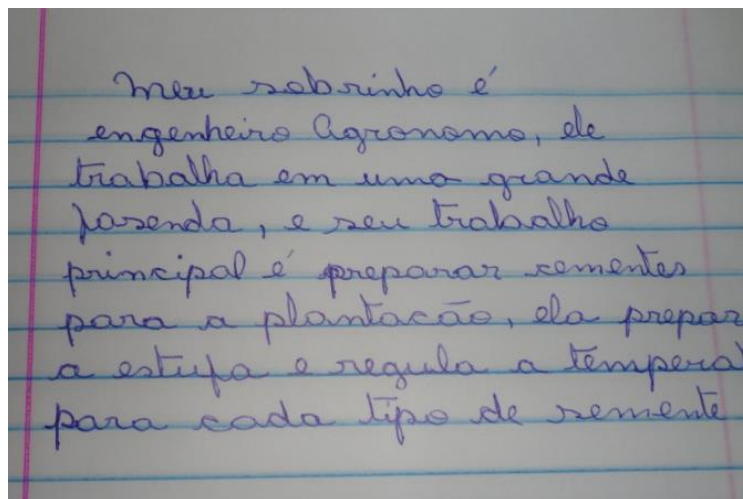 Meu sobrinho é
engenheiro Agronomo, ele
trabalha em uma grande
fasenda, e seu trabalho
principal é preparar sementes
para a plantacão, ela prepar
a estufa e regula a tempera
para cada tipo de semente